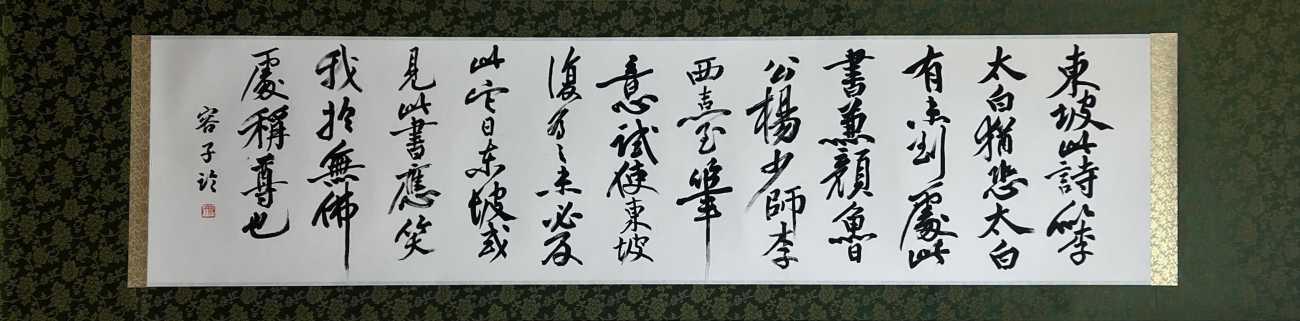 東坡此詩似李
太白猶恐太白
有未到處此
書兼顏魯
公楊少師李
西臺筆
意試使東坡
復為之未必及
此它日東坡或
見此書應笑
我於無佛
處稱尊也
容子